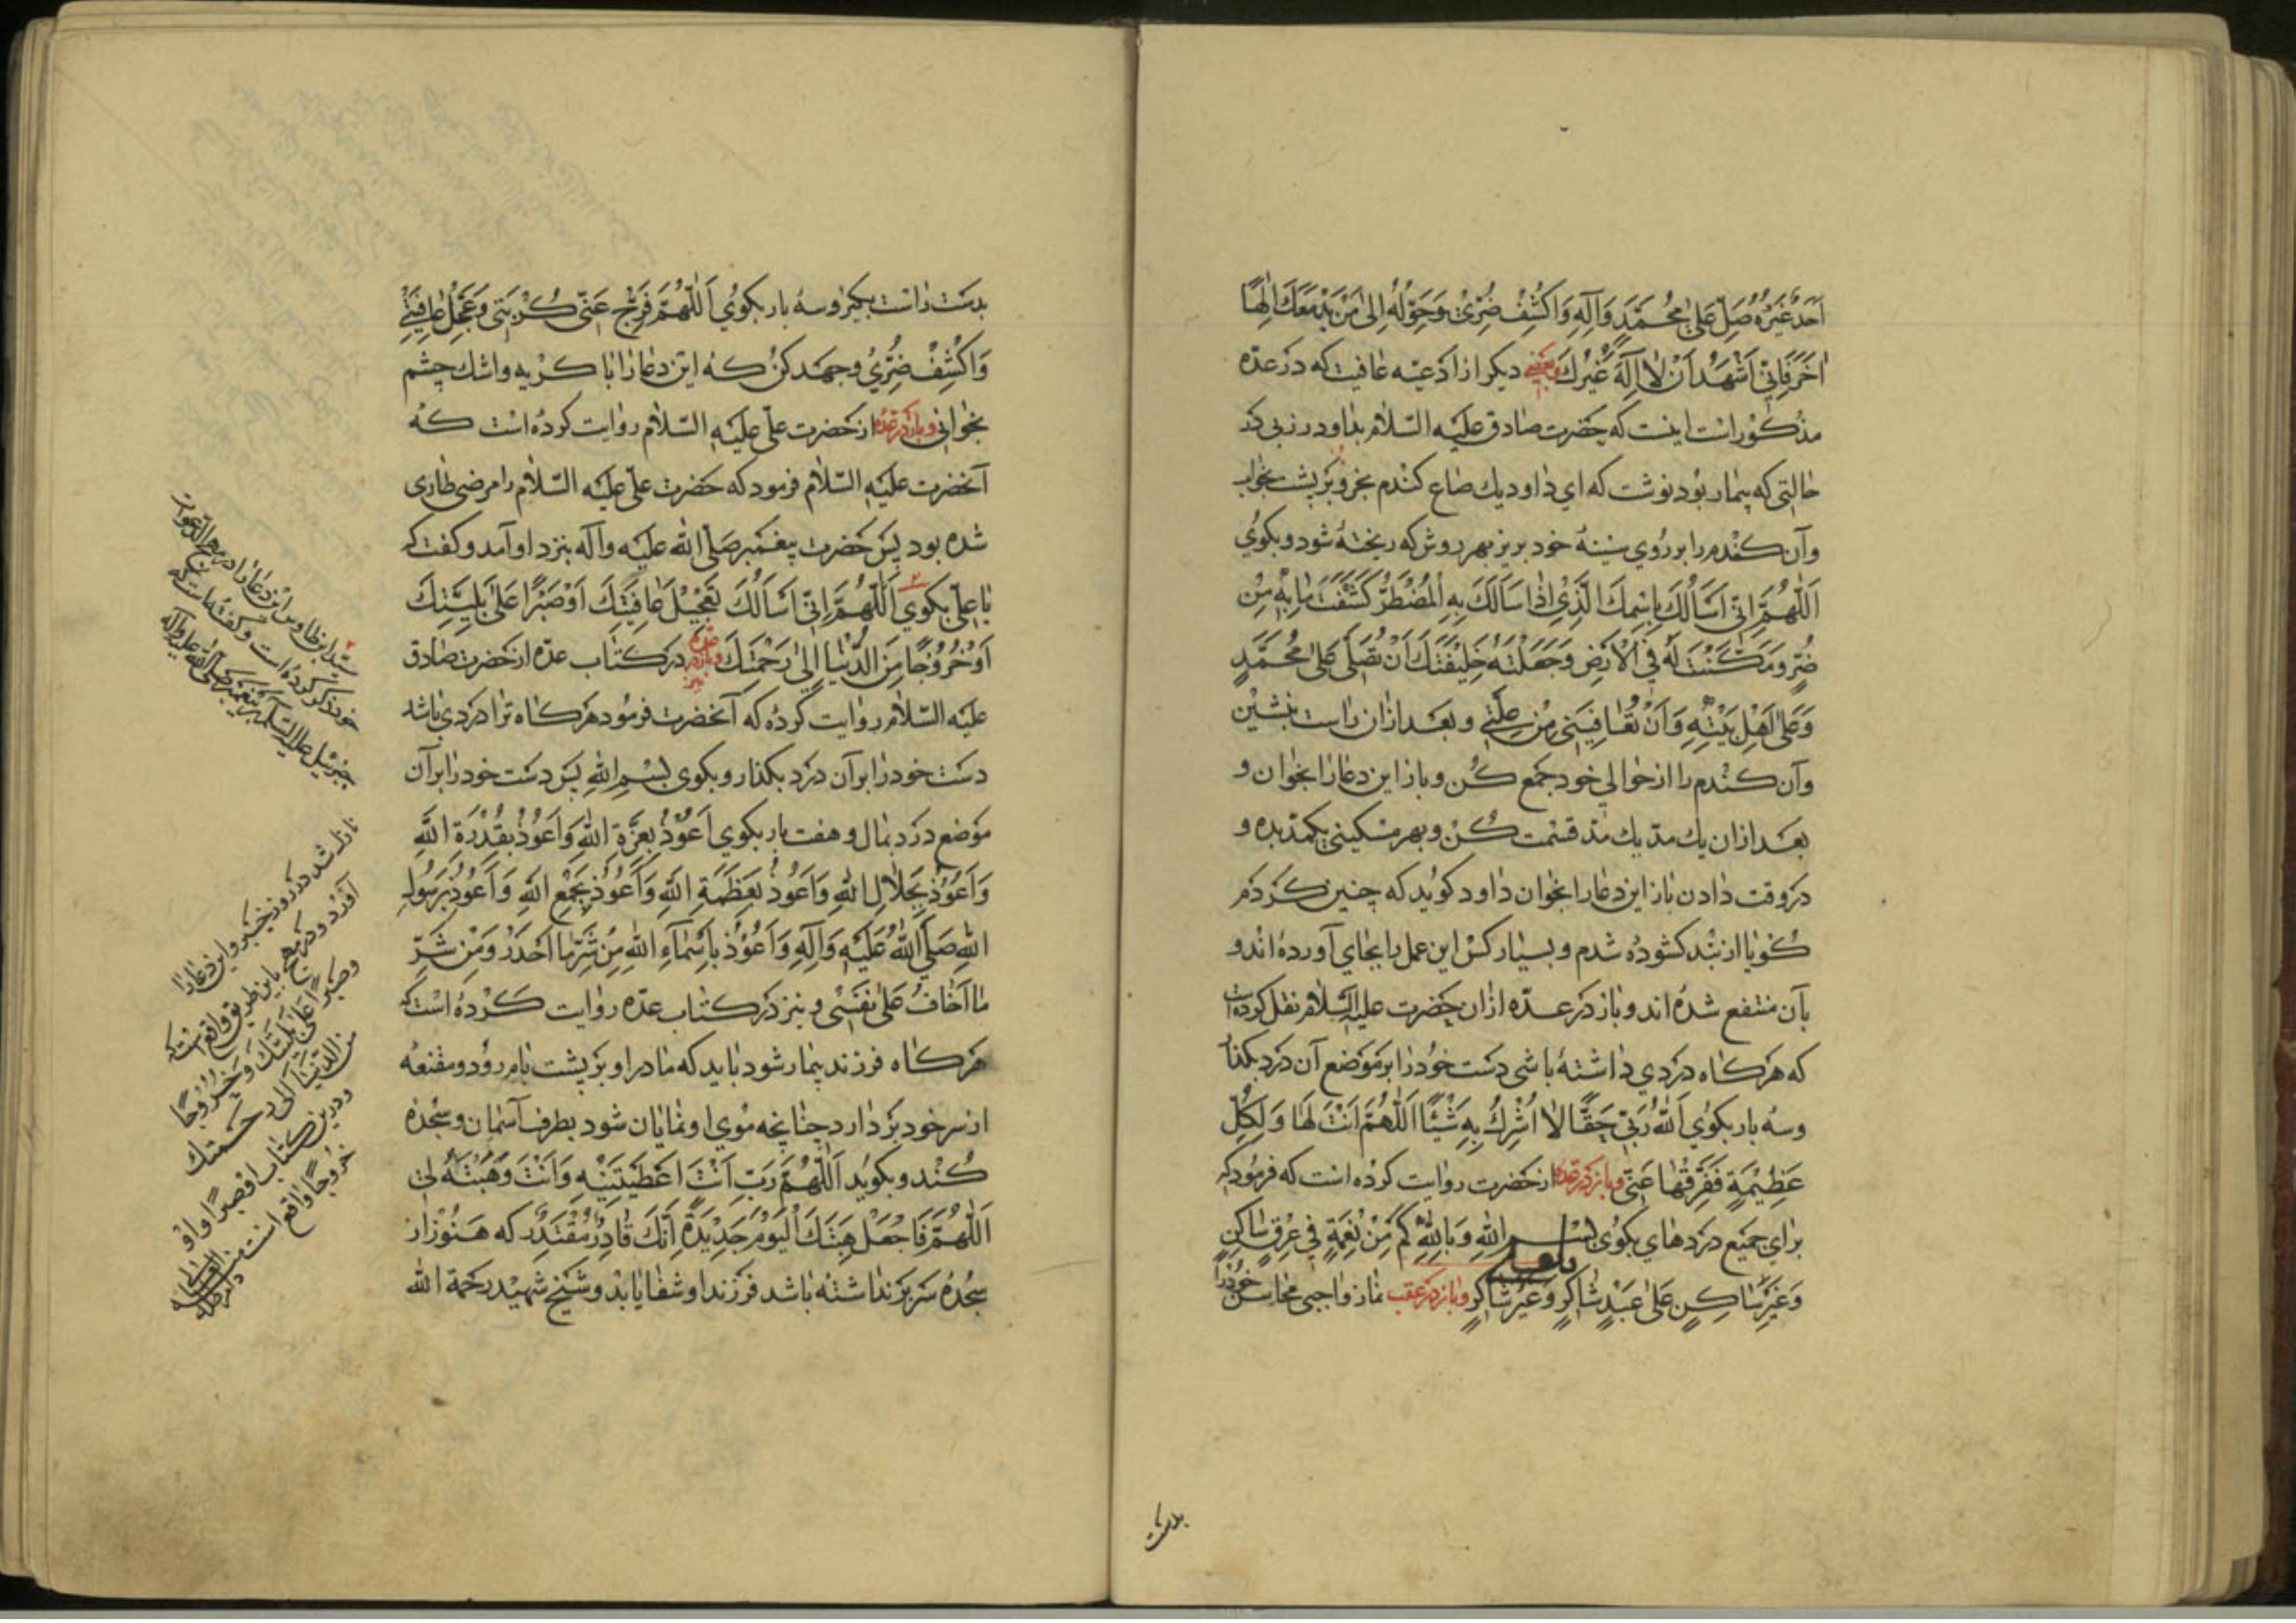 اَحَدٌ غَيْرُهُ صَلِّ عَلىٰ مُحَمَّدٍ وَآلِهِ وَاكْشِفْ ضُرّى وَحَوِّلْهُ اِلىٰ مَنْ يَدْعُو مَعَكَ اِلٰهًا
اٰخَرَ فَاِنّى اَشْهَدُ اَنْ لا اِلٰهَ غَيْرُكَ وبعضى ديكر از ادعيه عافيت كه در عدّه
مذكور است اينست كه حضرت صادق عليه السلام بداود رزبى كه در
حالتى كه بيمار بود نوشت كه اي داود يك صاع كندم بخر و بر پشت بخواب
وآن كندم را بر روي سينهٔ خود بريز بهر روش كه ريخته شود و بكوي
اَللّٰهُمَّ اِنّى اَسْاَلُكَ بِاسْمِكَ الَّذي اِذا سَاَلَكَ بِهِ الْمُضْطَرُّ كَشَفْتَ ما بِهِ مِنْ
ضُرٍّ وَمَكَّنْتَ لَهُ فِي الْاَرْضِ وَجَعَلْتَهُ خَليفَتَكَ اَنْ تُصَلّى عَلىٰ مُحَمَّدٍ
وَعَلىٰ اَهْلِ بَيْتِهِ وَاَنْ تُعافِيَنى مِنْ عِلَّتى وبعد ازان راست بنشين
وآن كندم را از حوالي خود جمع كن و باز اين دعا را بخوان و
بعد ازان يك مد يك مد قسمت كن و بهر مسكينى يكمد بده و
در وقت دادن باز اين دعا را بخوان داود كويد كه چنين كردم
كويا از بند كشوده شدم و بسيار كس اين عمل را بجاي آورده اند و
بآن منتفع شده اند و باز در عدّه ازان حضرت عليه السلام نقل كرده است
كه هر كاه دردي داشته باشى دست خود را بر موضع آن درد بكذار
وسه بار بكوي اَللّٰهُ رَبّى حَقًّا لا اُشْرِكُ بِهِ شَيْئًا اَللّٰهُمَّ اَنْتَ لَها وَلِكُلِّ
عَظيمَةٍ فَفَرِّقْها عَنّى وباز در عدّه از حضرت روايت كرده است كه فرمود كه
براي جميع دردهاى بكوى بِسْمِ اللهِ وَبِاللهِ كَمْ مِنْ نِعْمَةٍ فى عِرْقٍ ساكِنٍ
وَغَيْرِ ساكِنٍ عَلىٰ عَبْدٍ شاكِرٍ وَغَيْرِ شاكِرٍ وباز در عقب نماز واجبى محاسن خود را
بدست
بدست راست بكير وسه بار بكوي اَللّٰهُمَّ فَرِّجْ عَنّى كُرْبَتى وَعَجِّلْ عافِيَتى
وَاكْشِفْ ضُرّي وجهد كن كه اين دعا را با كريه واشك چشم
بخوانى وباز در عدّه از حضرت على عليه السلام روايت كرده است كه
آنحضرت عليه السلام فرمود كه حضرت على عليه السلام را مرضى طارى
شده بود پس حضرت پيغمبر صلى الله عليه وآله بنزد او آمد وكفت كه
يا على بكوي اَللّٰهُمَّ اِنّى اَسْاَلُكَ تَعْجيلَ عافِيَتِكَ اَوْ صَبْرًا عَلىٰ بَلِيَّتِكَ
اَوْ خُرُوجًا مِنَ الدُّنْيا اِلىٰ رَحْمَتِكَ در كتاب عدّه از حضرت صادق
عليه السلام روايت كرده كه آنحضرت فرمود هر كاه ترا دردي باشد
دست خود را بر آن درد بكذار و بكوى بِسْمِ اللهِ پس دست خود را بر آن
موضع درد بمال و هفت بار بكوي اَعُوذُ بِعِزَّةِ اللهِ وَاَعُوذُ بِقُدْرَةِ اللهِ
وَاَعُوذُ بِجَلالِ اللهِ وَاَعُوذُ بِعَظَمَةِ اللهِ وَاَعُوذُ بِجَمْعِ اللهِ وَاَعُوذُ بِرَسُولِ
اللهِ صَلَّى اللهُ عَلَيْهِ وَآلِهِ وَاَعُوذُ بِاَسْماءِ اللهِ مِنْ شَرِّ ما اَحْذَرُ وَمِنْ شَرِّ
ما اَخافُ عَلىٰ نَفْسى ونيز در كتاب عدّه روايت كرده است كه
هر كاه فرزند بيمار شود بايد كه مادر او بر پشت بام رود ومقنعه
از سر خود بردارد چنانچه موي او نمايان شود بطرف آسمان وسجده
كند و بكويد اَللّٰهُمَّ رَبِّ اَنْتَ اَعْطَيْتَنيهِ وَاَنْتَ وَهَبْتَهُ لى
اَللّٰهُمَّ فَاجْعَلْ هِبَتَكَ الْيَوْمَ جَديدَةً اِنَّكَ قادِرٌ مُقْتَدِرٌ كه هنوز از
سجده سر برنداشته باشد فرزند او شفا يابد وشيخ شهيد رحمة الله
سيد ابن طاوس اين دعا را در مهج الدعوات
خود ذكر كرده است وكفته است كه
جبرئيل عليه السلام بر پيغمبر صلى الله عليه وآله
نازل شد در روز خيبر و اين دعا را
آورد و در مهج باين طريق واقعست كه
وصبرًا على بليّتك وخروجًا
من الدنيا الى رحمتك
ودرين كتاب او صبرًا واو
خروجًا واقع است